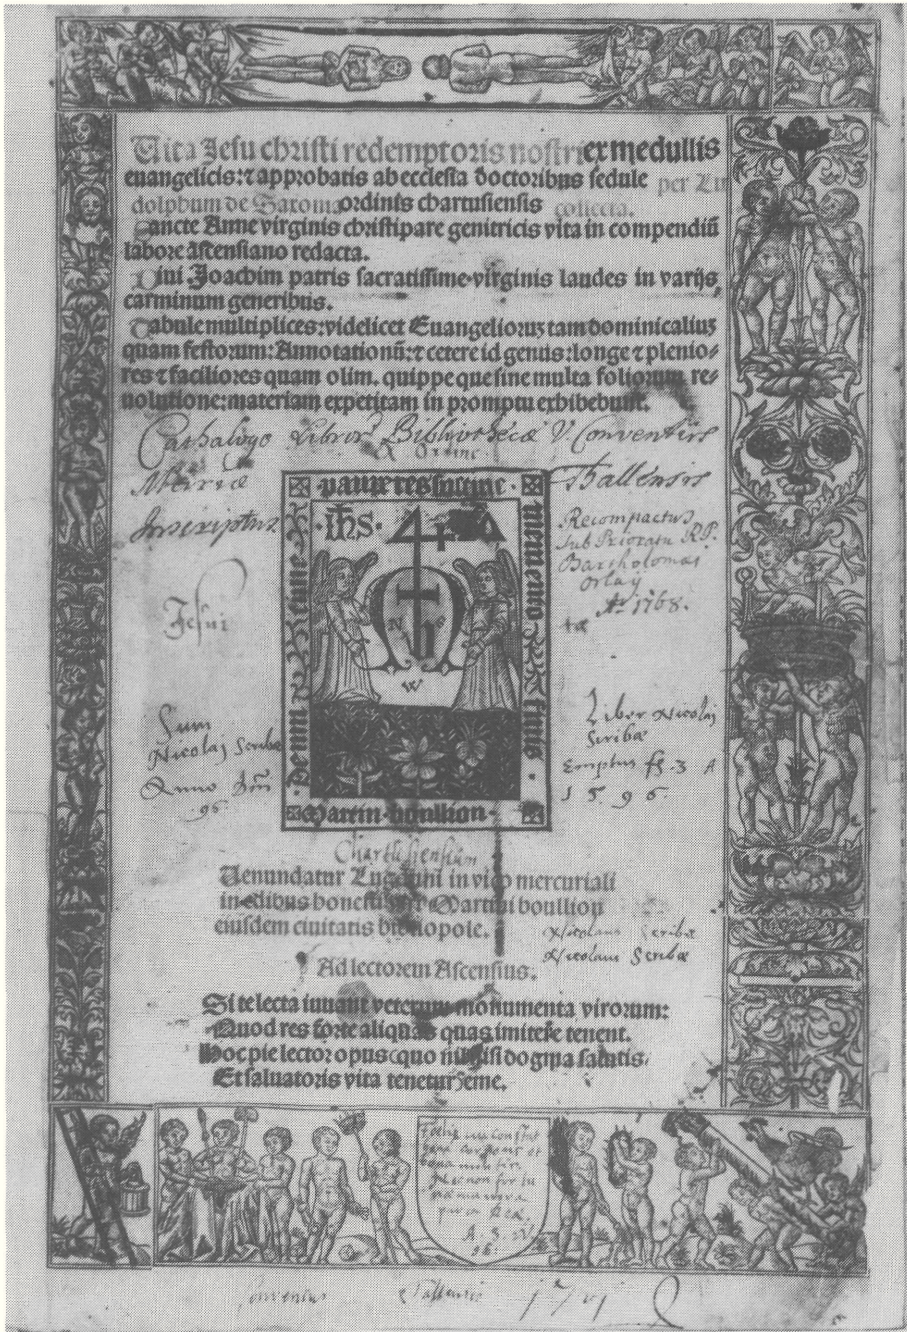 Uita Jesu christi redemptoris nostri ex medullis
euangelicis: ⁊ approbatis ab ecclesia doctoribus sedule per Lu
dolphum de Saxonia ordinis chartusiensis collecta.
Sancte Anne virginis christipare genitricis vita in compendiū
labore ascensiano redacta.
Diui Joachim patris sacratissime virginis laudes in varijs
carminum generibus.
Tabule multiplices: videlicet Euangelioruꝫ tam dominicaliuꝫ
quam festorum: Annotationū: ⁊ cetere id genus: longe ⁊ plenio-
res ⁊ faciliores quam olim. quippe que sine multa foliorum re-
uolutione: materiam expetitam in promptu exhibebunt.
Cathalogo Libror Bibliothecæ V. Conventus
Ordine
Mariæ Thallensis
Inscriptus
Recompactus
sub Prioratu R.P.
Bartholomæi
Orlay
Aº 1768.
Jesui
IHS
memento
finis
Martin boullion
N
W
Sum
Nicolaj Scribæ
Anno
96
Liber Nicolaj
Scribæ
Emptus fl. 3 A
1 5 9 6.
Charthusiensium
Uenundatur Lugduni in vico mercuriali
in edibus honesti viri Martini boullion
eiusdem ciuitatis bibliopole.
Nicolaus Scribæ
Nicolaus Scribæ
Ad lectorem Ascensius.
Si te lecta iuuant veterum monumenta virorum:
Quod res forte aliquas quas imitere tenent.
Hoc pie lector opus: quo nil nisi dogma salutis.
Et saluatoris vita tenetur: eme.
A. 3. W
96
Conventus Thallensis